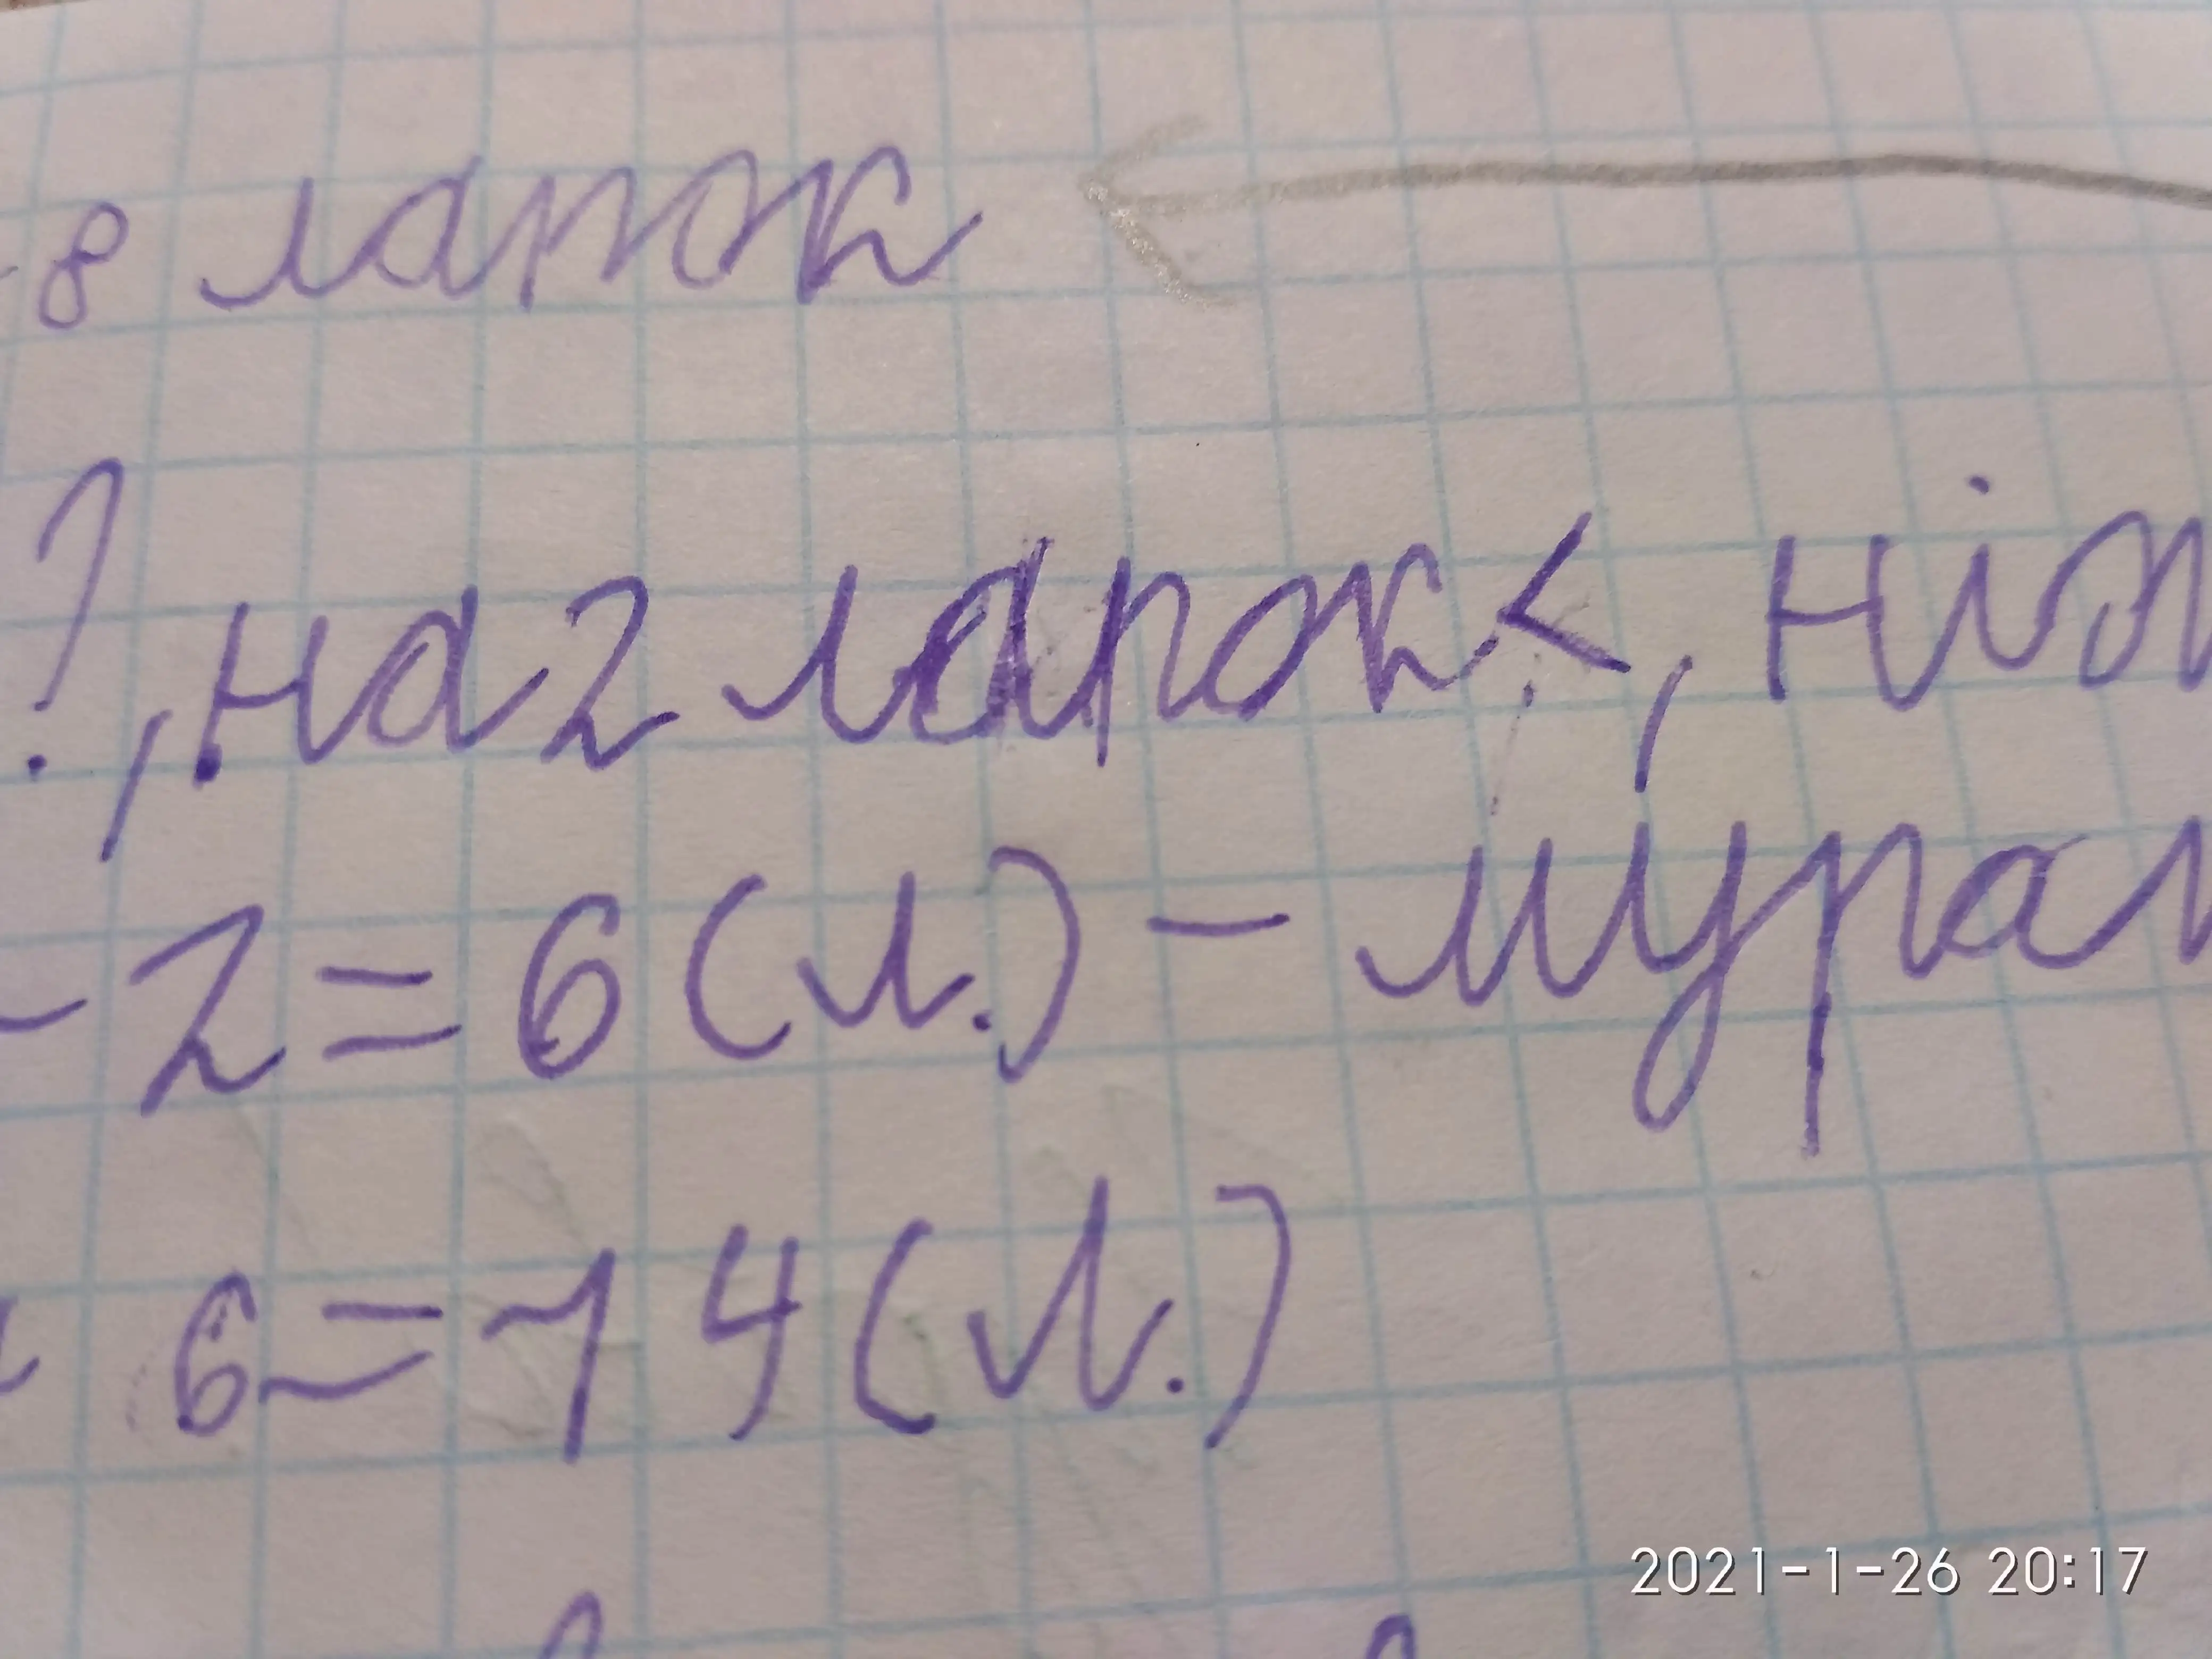 - 8 лапок
?, на 2 лапок <, ніж
- 2 = 6 (л.) - мура
6 = 14 (л.)
2021-1-26 20:17